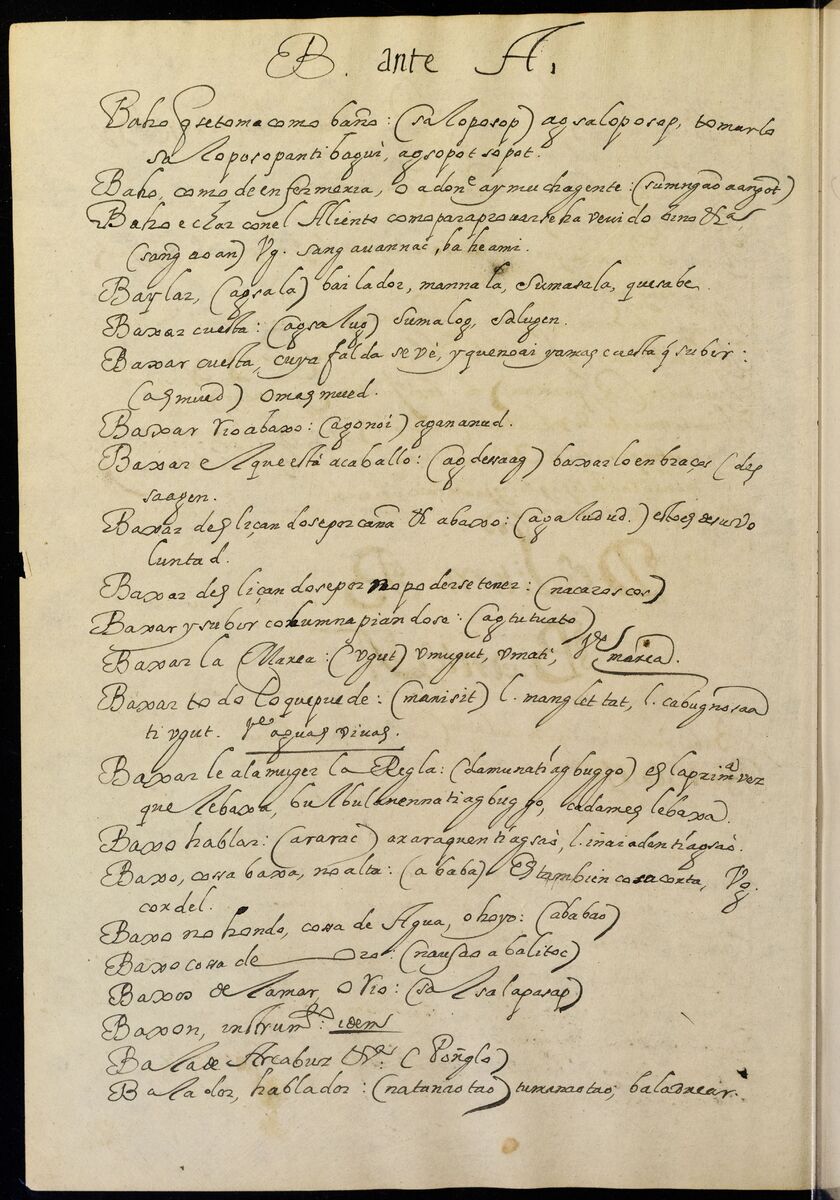 B. ante A.
Baho q̃ se toma como baño: (saloposop) agsaloposop, tomarlo
saloposopanti baguì, agsopot sopot.
Baho, como de enfermeria, o adonᵉ ay mucha gente: (sumngao aangot)
Baho echar con el Aliento como para provar se ha vevido bino &ᵃ,
(sangaoan) Vg. sangauannac, baheami.
Baylar, (agsala) bailador, mannala, Sumasala, que sabe.
Baxar cuesta: (agsalug) Sumalog, Salugen.
Baxar cuesta, cuya falda se vè, y que no ai ya mas cuesta q̃ subir:
(asmued) omasmued.
Baxar rio abaxo: (agonoi) agananud.
Baxar el que està a caballo: (agdessaag) baxarlo en braços (des
saagen.
Baxar desliçandose por caña & abaxo: (agaludud.) esto es de su vo
luntad.
Baxar desliçandose por no poderse tener: (nacaroscos)
Baxar y subir columnapiandose: (agtutuato)
Baxar la Marea: (vgut) vmugut, vmatì, vᵉ marea.
Baxar todo lo que puede: (manisit) l. manglettat, l. cabugnosaan
ti vgut. vᵉ aguas vivas.
Baxarle a la muger la Regla: (damunatìagbuggo) es la primᵃ vez
que le baxa, bulbulanennatiagbuggo, cada mes le baxa.
Baxo hablar: (ararac) araraquentìagsaò, l. iñaiadentìagsaò.
Baxo, cossa baxa, no alta: (ababa) Es tambien cosa corta, Vg.
cordel.
Baxo no hondo, cossa de Agua, o hoyo: (ababao)
Baxo cossa de Oro: (nausao a balitoc)
Baxos de la mar, o rio: (salsalaposap)
Baxon, instrumᵗᵒ: idem
Bala de Arcabuz &ᵃ: (Pong̃lo)
Balador, hablador: (natanaotao) tumanaotao, baladrear.